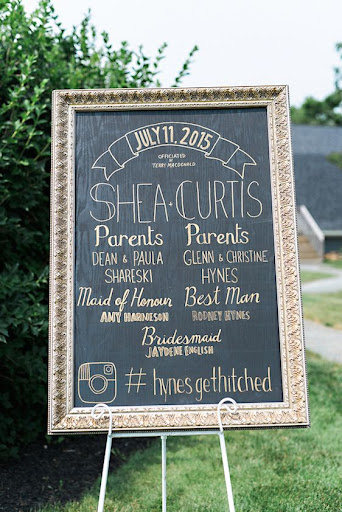 JULY 11. 2015
OFFICIATED
BY
TERRY MACDONALD
SHEA + CURTIS
Parents Parents
DEAN & PAULA GLENN & CHRISTINE
SHARESKI HYNES
Maid of Honour Best Man
AMY HARNESON RODNEY HYNES
Bridesmaid
JAYDENE ENGLISH
# hynesgethitched